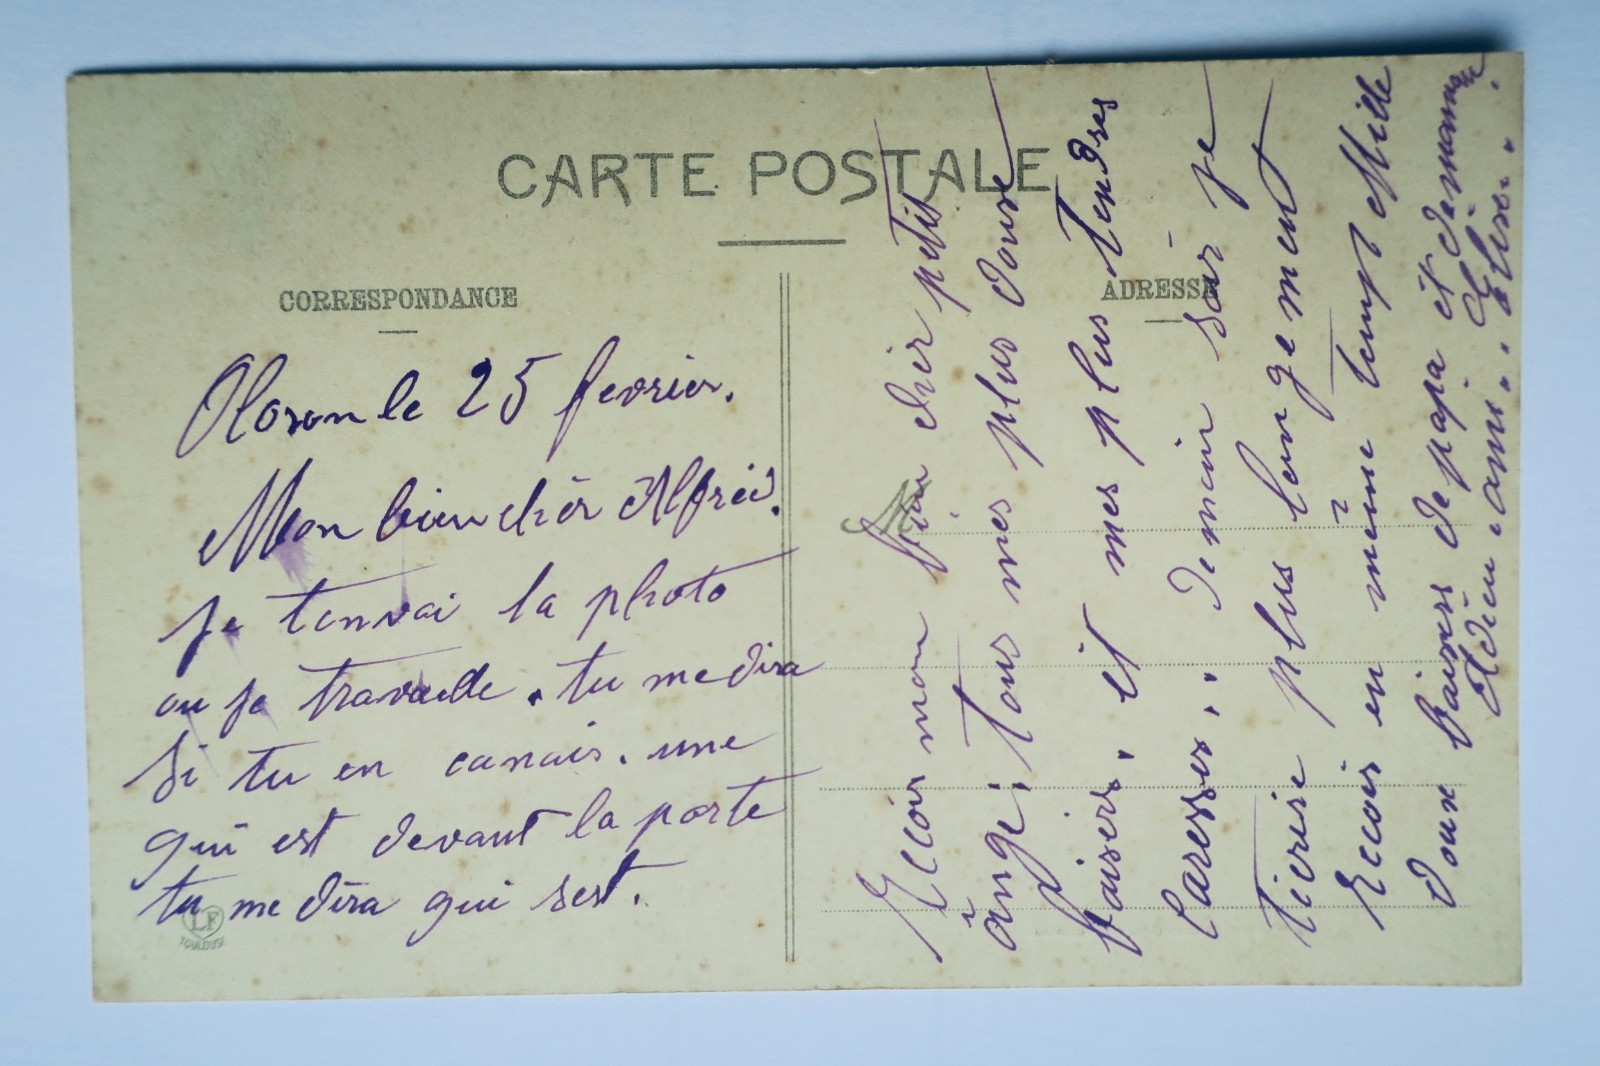 CARTE POSTALE
CORRESPONDANCE
ADRESSE
Oloron le 25 fevrier.
Mon bien chèr Alfred.
je tenvoi la photo
ou je travaille. tu me dira
si tu en canais. une
qui est devant la porte
tu me dira qui sest.
LF
TOULOUSE
Recoir mon bien cher petit
ânge; tous mes plus doux
baisers. et mes plus tendres
caresses.. demain soir je
plus longement
Recois en même temp Mille
doux baisers de papa et de maman
Adieu ami..